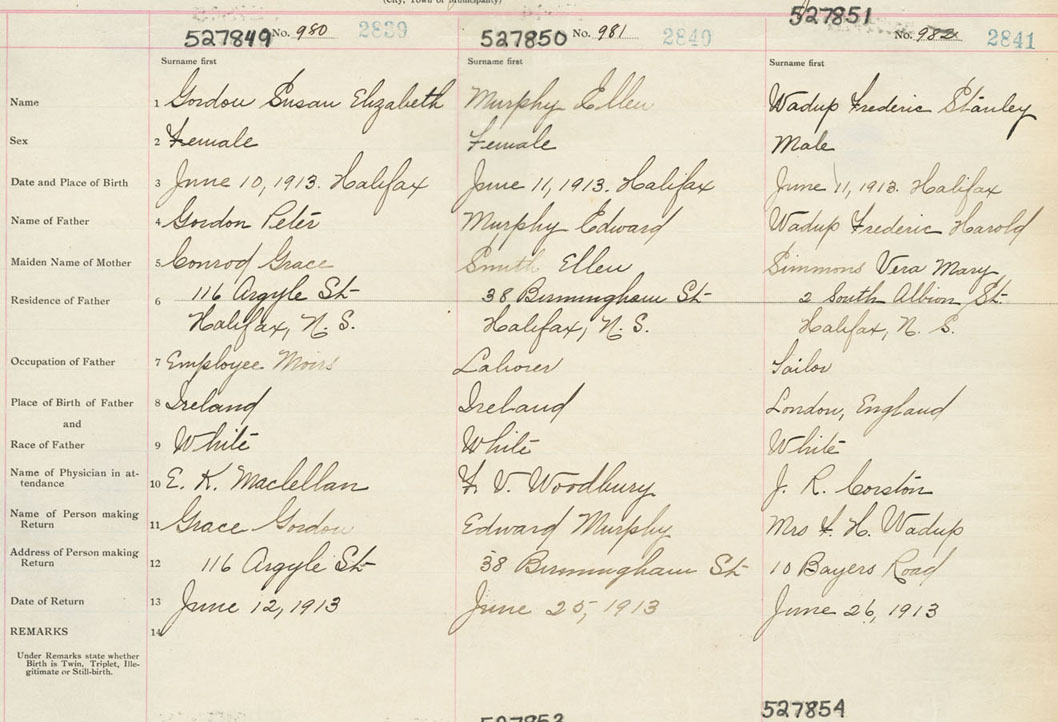 (City, Town or Municipality)
527849 No. 980 2839
527850 No. 981 2840
527851 No. 982 2841
Surname first Surname first Surname first
Name 1 Gordon Susan Elizabeth Murphy Ellen Wadup Frederic Stanley
Sex 2 Female Female Male
Date and Place of Birth 3 June 10, 1913. Halifax June 11, 1913. Halifax June 11, 1913. Halifax
Name of Father 4 Gordon Peter Murphy Edward Wadup Frederic Harold
Maiden Name of Mother 5 Conrod Grace Smith Ellen Simmons Vera Mary
Residence of Father 6 116 Argyle St 38 Birmingham St 2 South Albion St.
Halifax, N. S. Halifax, N. S. Halifax, N. S.
Occupation of Father 7 Employee Moirs Laborer Sailor
Place of Birth of Father 8 Ireland Ireland London, England
and
Race of Father 9 White White White
Name of Physician in at-
tendance 10 E. K. Maclellan F. V. Woodbury J. R. Corston
Name of Person making
Return 11 Grace Gordon Edward Murphy Mrs F. H. Wadup
Address of Person making
Return 12 116 Argyle St 38 Birmingham St 10 Bayers Road
Date of Return 13 June 12, 1913 June 25, 1913 June 26, 1913
REMARKS 14
Under Remarks state whether
Birth is Twin, Triplet, Ille-
gitimate or Still-birth.
527853 527854